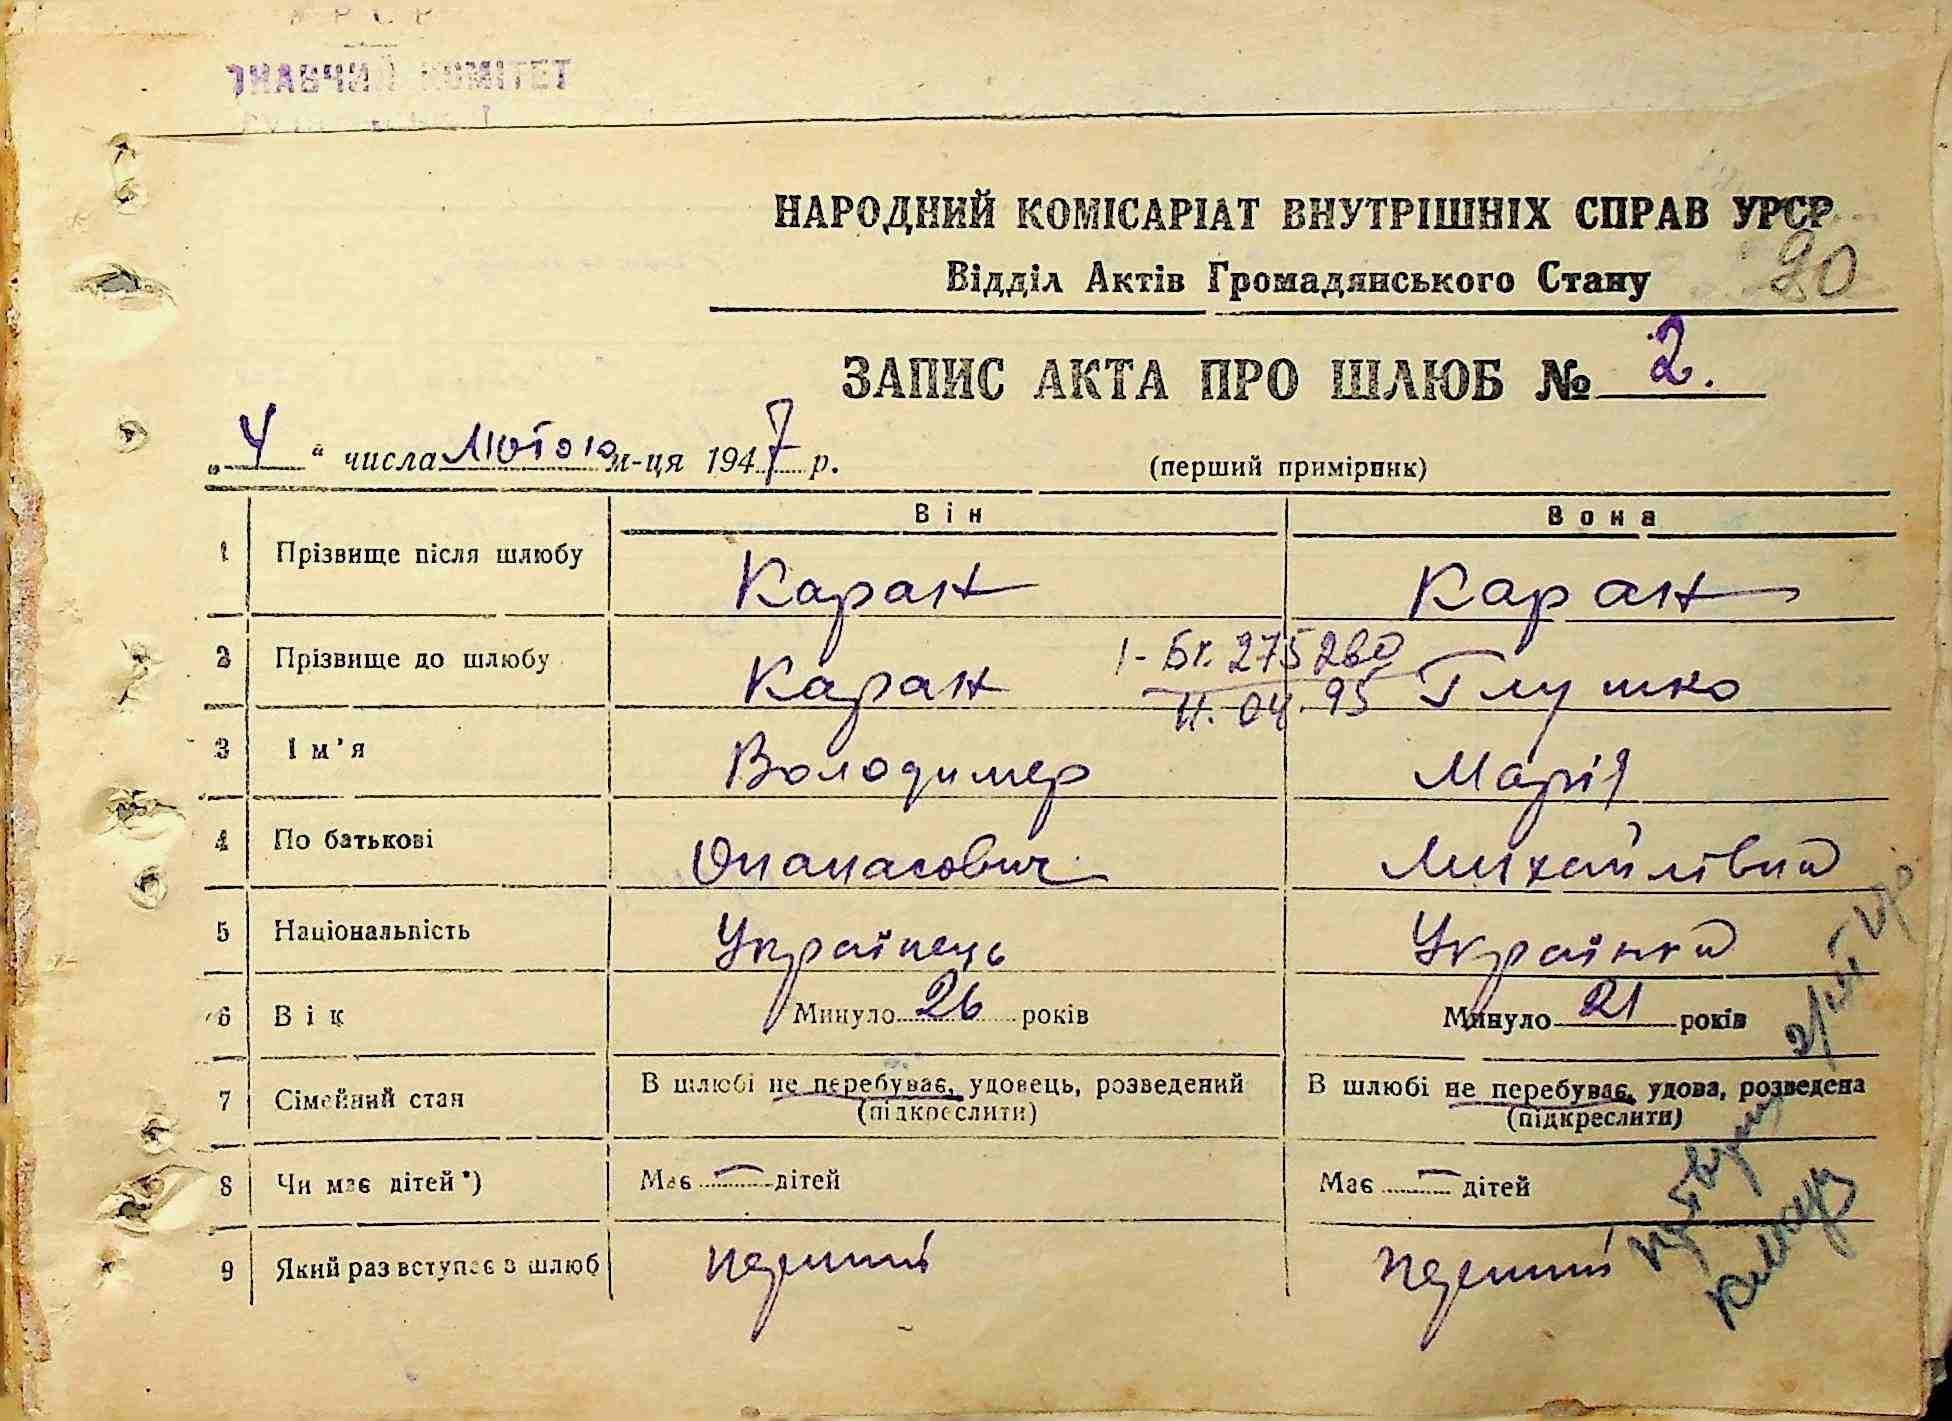 НАРОДНИЙ КОМІСАРІАТ ВНУТРІШНІХ СПРАВ УРСР
Відділ Актів Громадянського Стану
ЗАПИС АКТА ПРО ШЛЮБ № 2.
„ 4 “ числа Лютого м-ця 1947 р.
(перший примірник)
Він Вона
1 Прізвище після шлюбу Каран Каран
1-Бк. 275260
2 Прізвище до шлюбу Каран Глушко
04.95
3 Ім’я Володимер Марія
4 По батькові Опанасович Михайлівна
5 Національність Українець Українка
6 Вік Минуло 26 років Минуло 21 років
7 Сімейний стан В шлюбі не перебуває, удовець, розведений В шлюбі не перебуває, удова, розведена
(підкреслити) (підкреслити)
8 Чи має дітей*) Має — дітей Має — дітей
9 Який раз вступає в шлюб перший перший